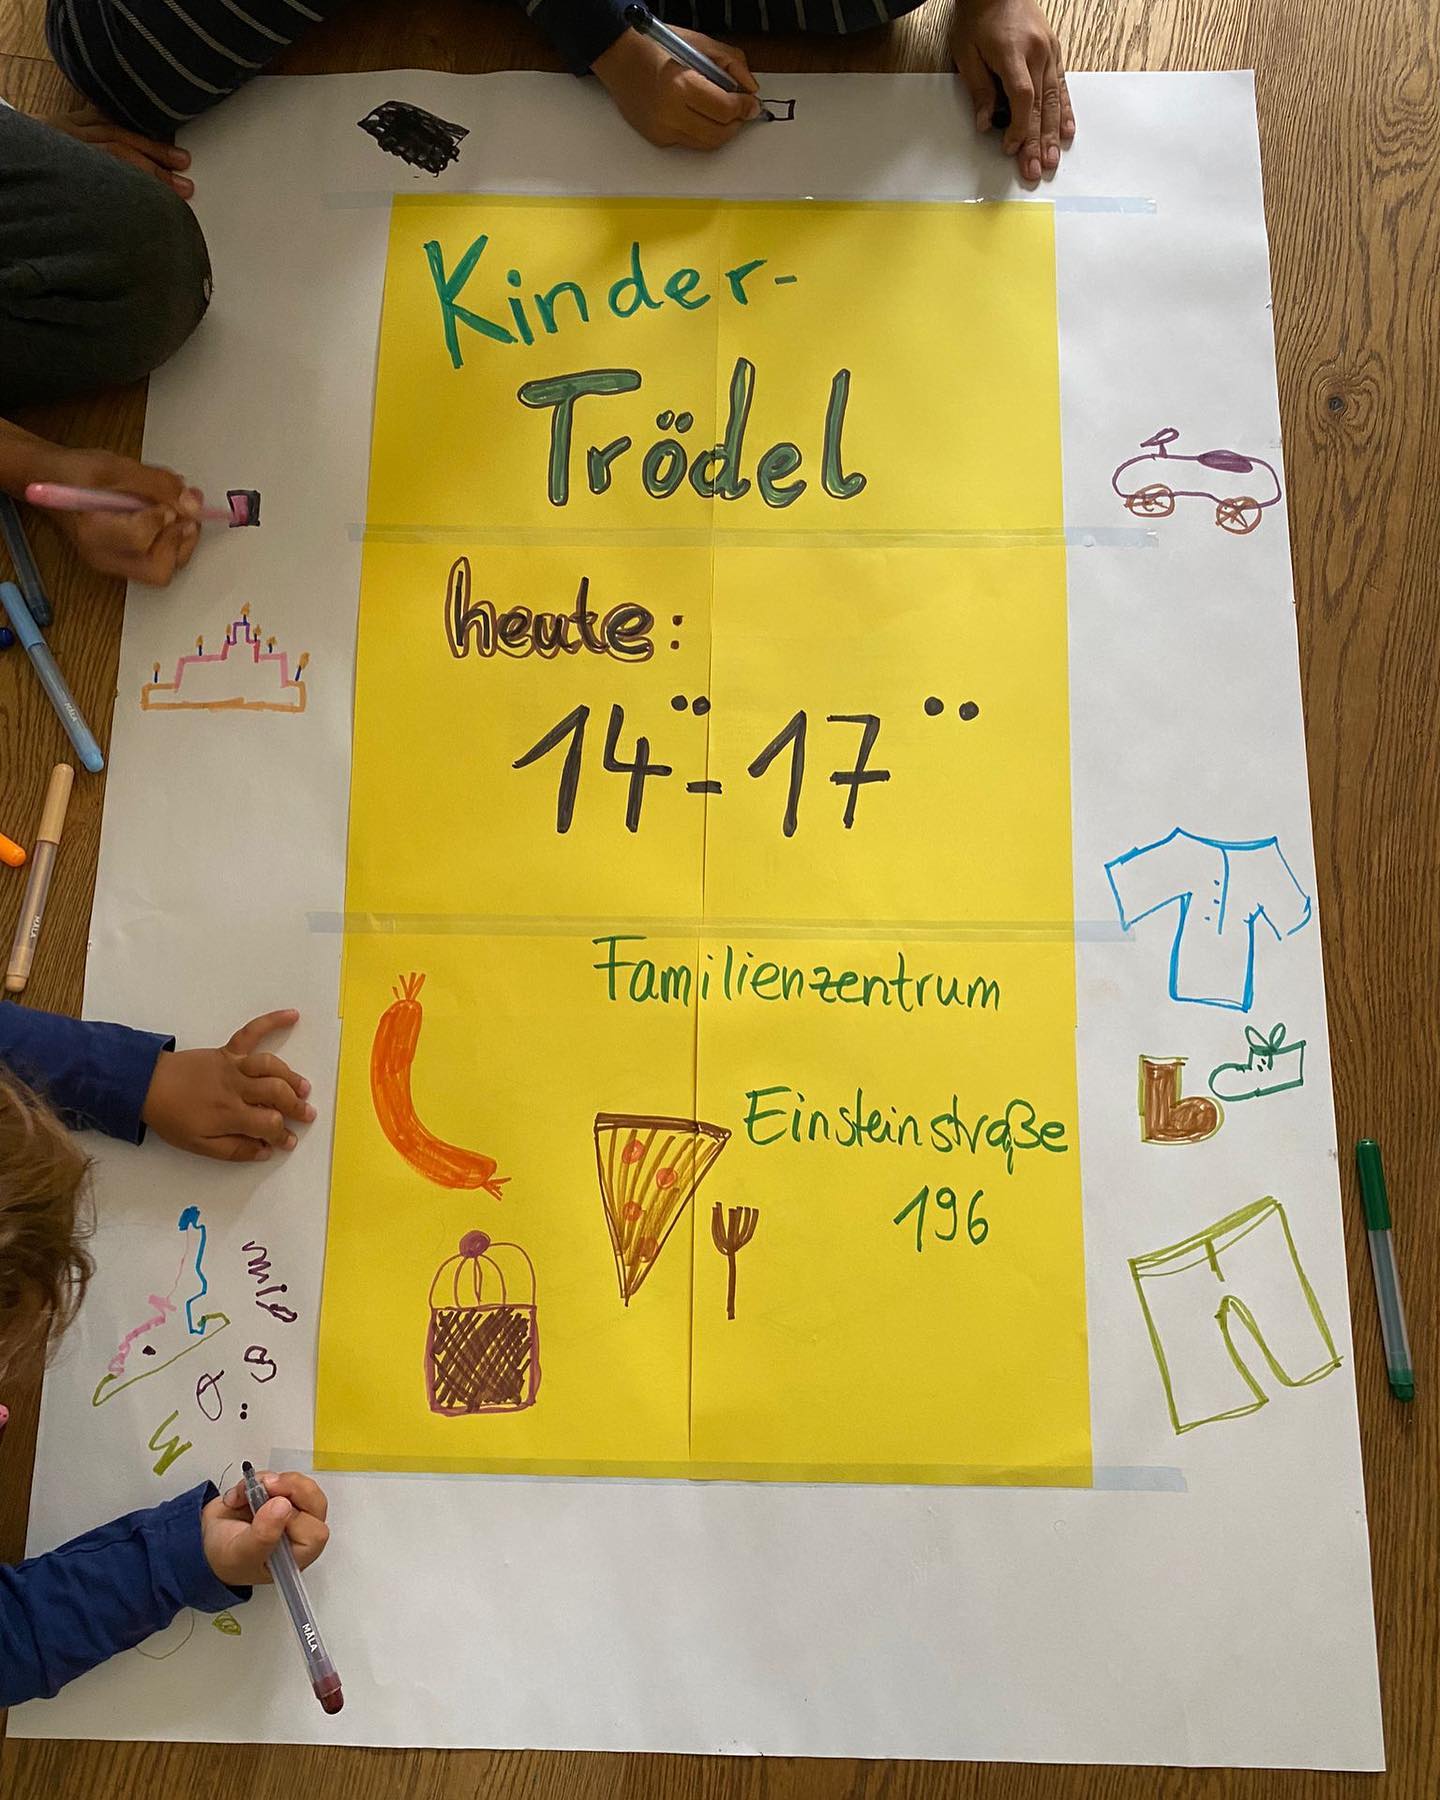 Kinder-
Trödel
heute:
14°° - 17°°
Familienzentrum
Einsteinstraße
196
MÅLA
MÅLA
MÅLA